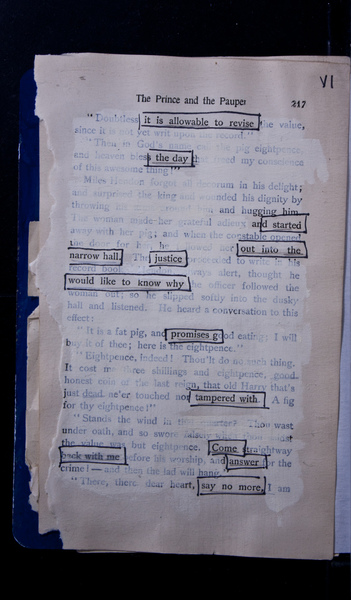 VI
The Prince and the Pauper 217
"Doubtless it is allowable to revise the value,
since it is not yet writ upon the record."
"Then in God's name the pig eightpence,
and heaven bless the day that my conscience
of this awesome thing!"
Miles Hendon forgot all decorum in his delight;
and surprised the king and wounded his dignity by
throwing his and hugging him.
The woman made her grateful adieux and started
away with her pig; and when the constable opened
the door for her, he out into the
narrow hall. The justice proceeded to write in his
record book. always alert, thought he
would like to know why the officer followed the
woman out; so he slipped softly into the dusky
hall and listened. He heard a conversation to this
effect:
"It is a fat pig, and promises good eating; I will
buy it of thee; here is the eightpence."
"Eightpence, indeed! Thou'lt do no such thing.
It cost me three shillings and eightpence, good
honest coin of the last reign, that old Harry that's
just dead ne'er touched nor tampered with. A fig
for thy eightpence!"
"Stands the wind in that quarter? Thou wast
under oath, and so swore falsely
the value was but eightpence. Come straightway
back with me before his worship, and answer for the
crime!—and then the lad will hang."
"There, there, dear heart, say no more, I am